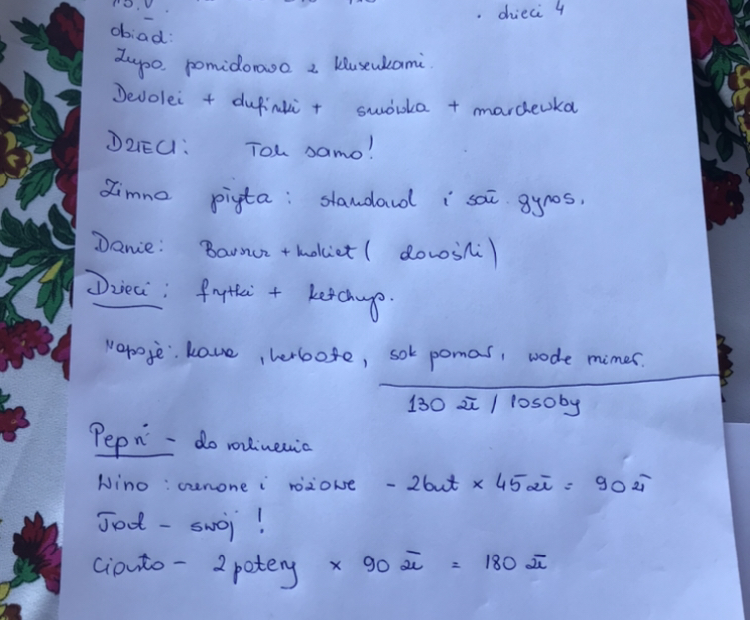 15.V
• dzieci 4
obiad:
Zupa pomidorowa z kluseukami.
Devolei + dufinki + surówka + marchewka
DZIECI: Tak samo!
Zimna płyta: standard i sał. gyros.
Danie: Barszcz + krokiet (dorośli)
Dzieci: frytki + ketchup.
Napoje: kawa, herbata, sok pomar, woda miner.
130 zł / 1osoby
- do rozliczenia
Wino: czerwone i różowe - 2but x 45zł = 90zł
Tort - swój!
Ciasto - 2 patery x 90 zł = 180 zł